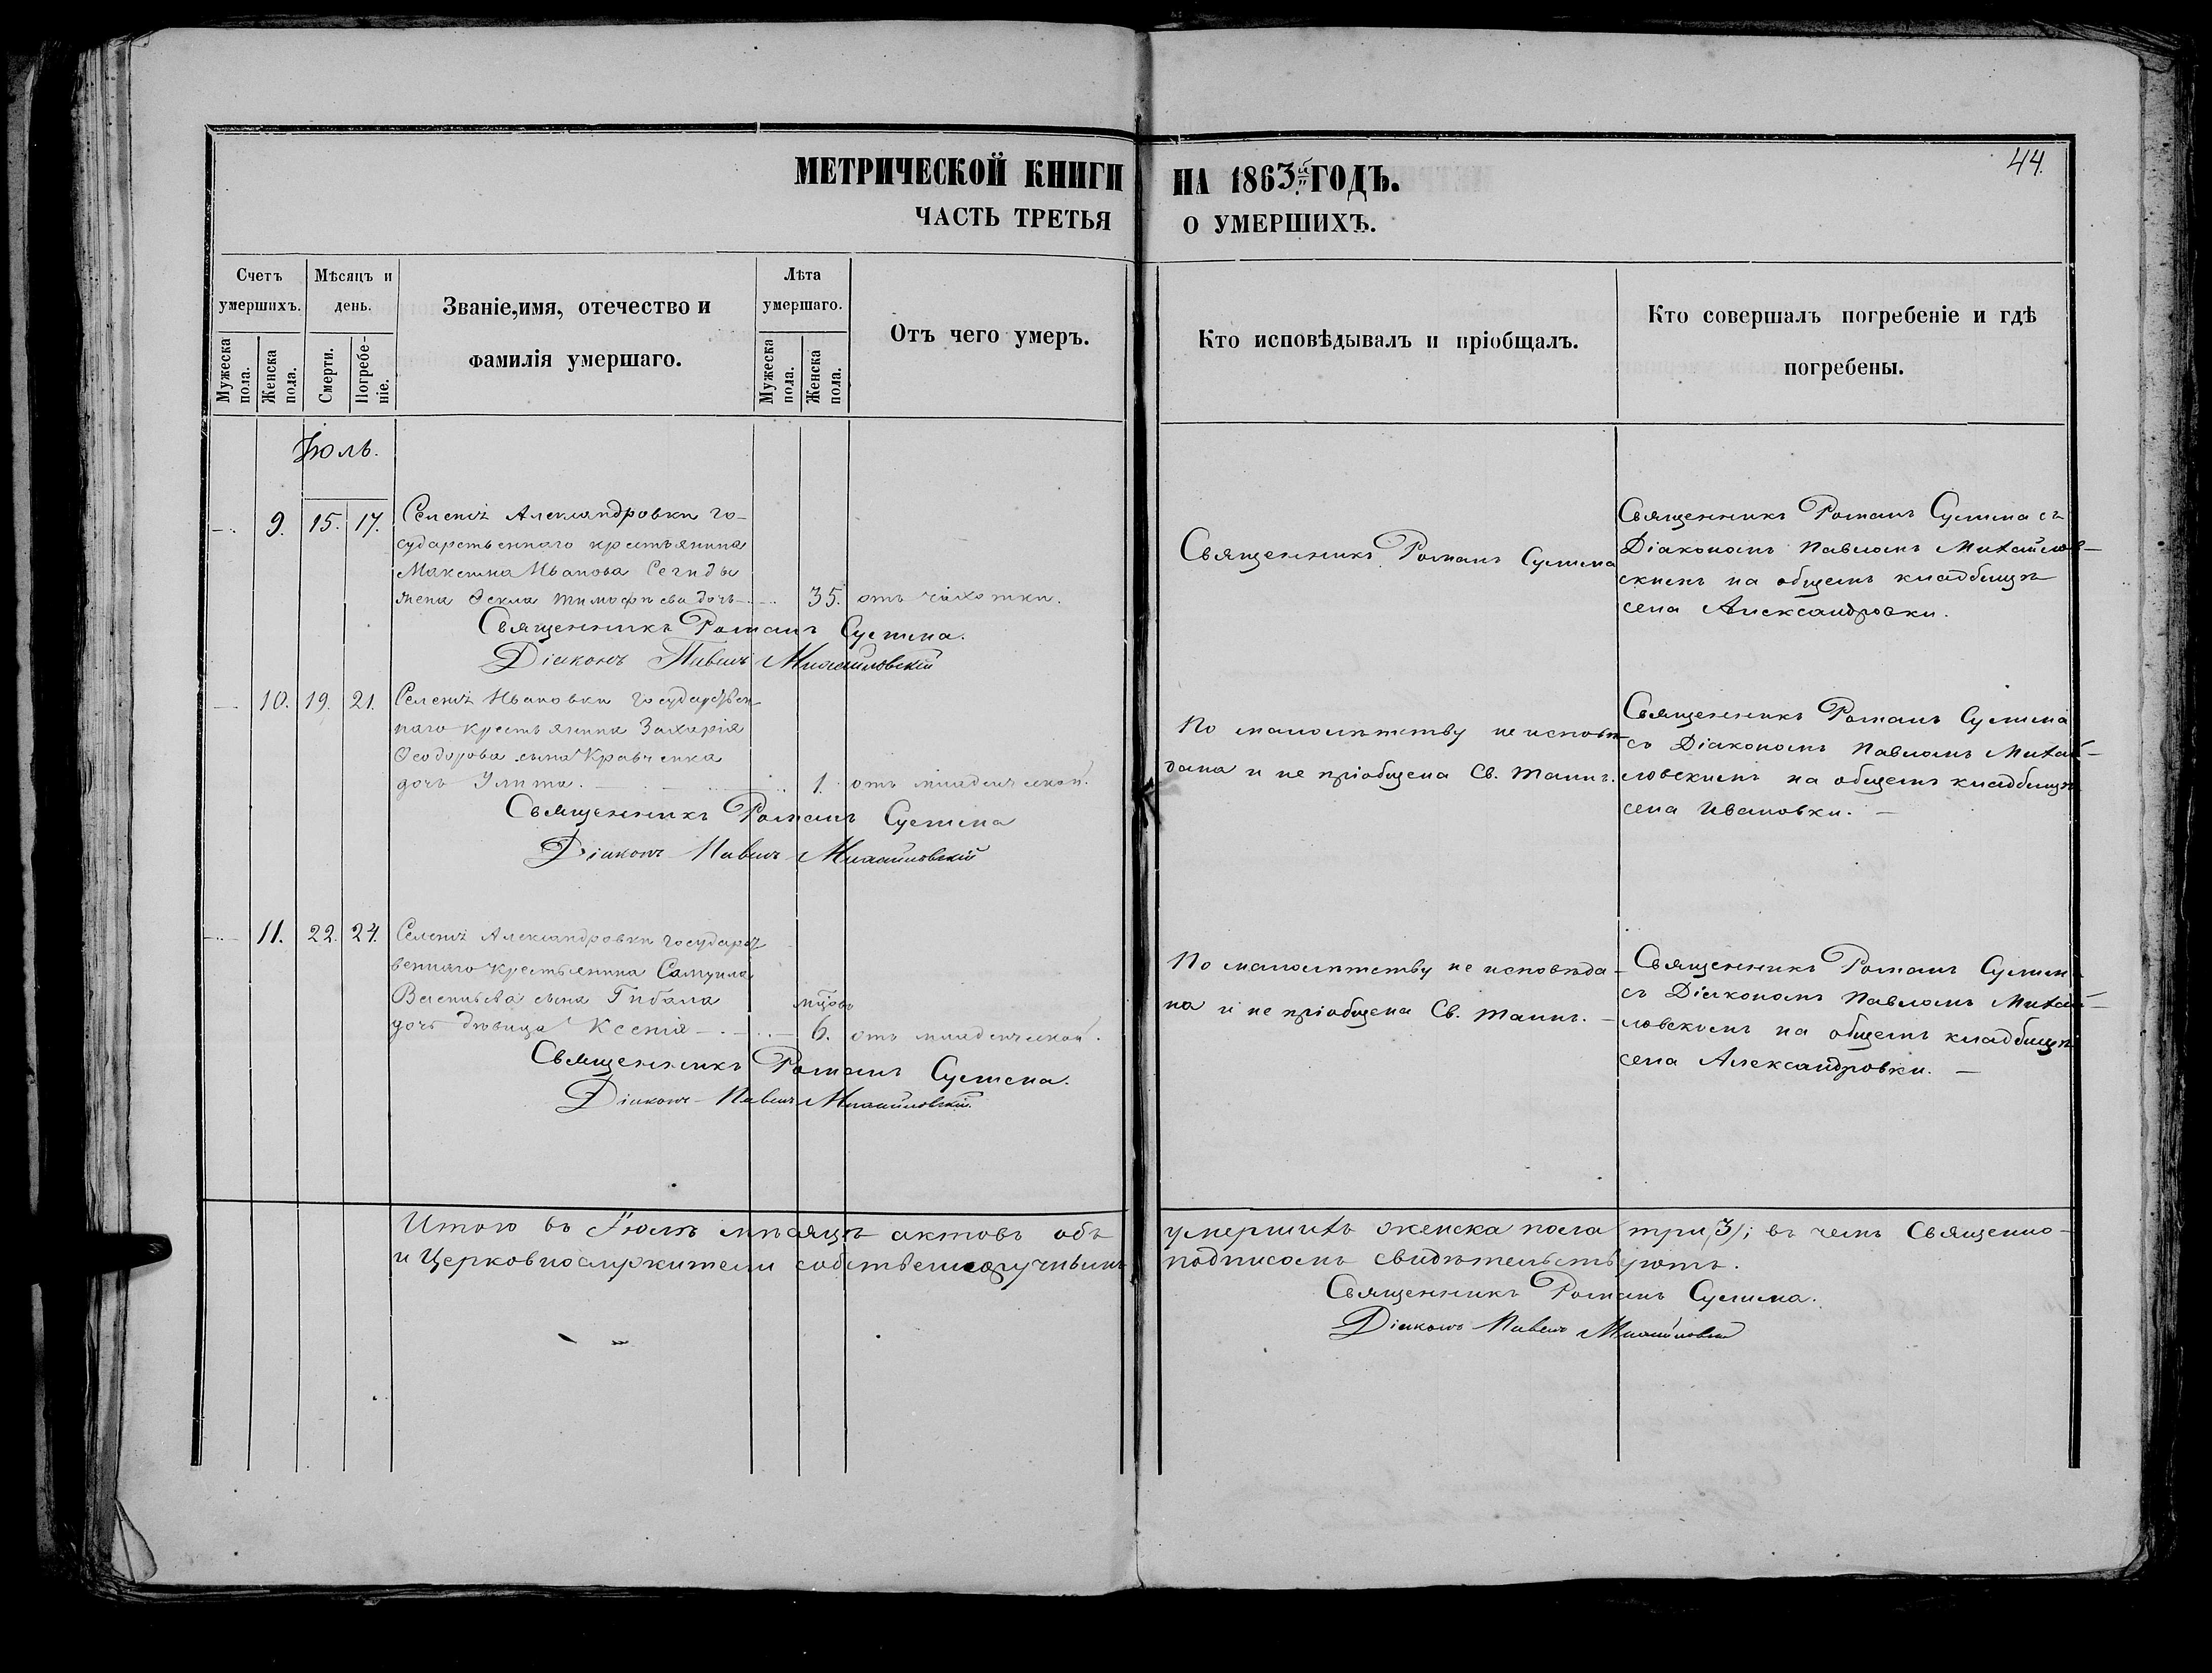 44.
МЕТРИЧЕСКОЙ КНИГИ НА 1863й ГОДЪ.
ЧАСТЬ ТРЕТЬЯ О УМЕРШИХЪ.
Счетъ умершихъ.
Мужеска пола.
Женска пола.
Мѣсяцъ и день.
Смерти.
Погребеніе.
Званіе, имя, отечество и фамилія умершаго.
Лѣта умершаго.
Мужеска пола.
Женска пола.
Отъ чего умеръ.
Кто исповѣдывалъ и пріобщалъ.
Кто совершалъ погребеніе и гдѣ погребены.
Іюль.
9. 15. 17. Селенія Александровки го-
сударственнаго крестьянина
Максима Иванова Сегиды
жена Ѳекла Тимофѣева дочь 35. отъ чахотки.
Священникъ Романъ
Діаконъ Павелъ Михайловскій
Священникъ Романъ
Священникъ Романъ съ
Діакономъ Павломъ Михайлов-
скимъ на общемъ кладбищѣ
села Александровки.
10. 19. 21. Селенія Ивановки государствен
наго крестьянина Захарія
Ѳеодорова сына Кравченка
дочь Улита. 1. отъ младенческой.
Священникъ Романъ
Діаконъ Павелъ Михайловскій
По малолѣтству не исповѣ
дана и не пріобщена Св. Таинъ.
Священникъ Романъ
съ Діакономъ Павломъ Михай-
ловскимъ на общемъ кладбищѣ
села Ивановки. —
11. 22. 24. Селенія Александровки государст
веннаго крестьянина Самуила
Васильева сына Гибала мцовъ
дочь дѣвица Ксенія 6. отъ младенческой.
Священникъ Романъ
Діаконъ Павелъ Михайловскій.
По малолѣтству не исповѣда-
на и не пріобщена Св. Таинъ. —
Священникъ Романъ
съ Діакономъ Павломъ Михай-
ловскимъ на общемъ кладбищѣ
села Александровки. —
Итого въ Іюлѣ мѣсяцѣ актовъ объ умершихъ женска пола три (3); въ чемъ Священно-
и Церковнослужители собственноручнымъ подписомъ свидѣтельствуютъ.
Священникъ Романъ
Діаконъ Павелъ Михайловскій